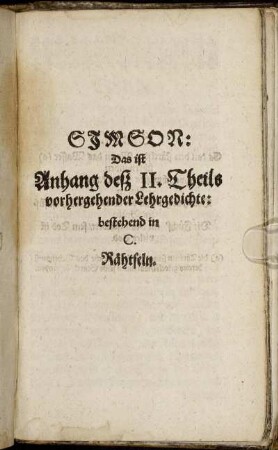 SIMSON:
Das ist
Anhang deß II. Theils
vorhergehender Lehrgedichte:
bestehend in
C.
Rähtseln.